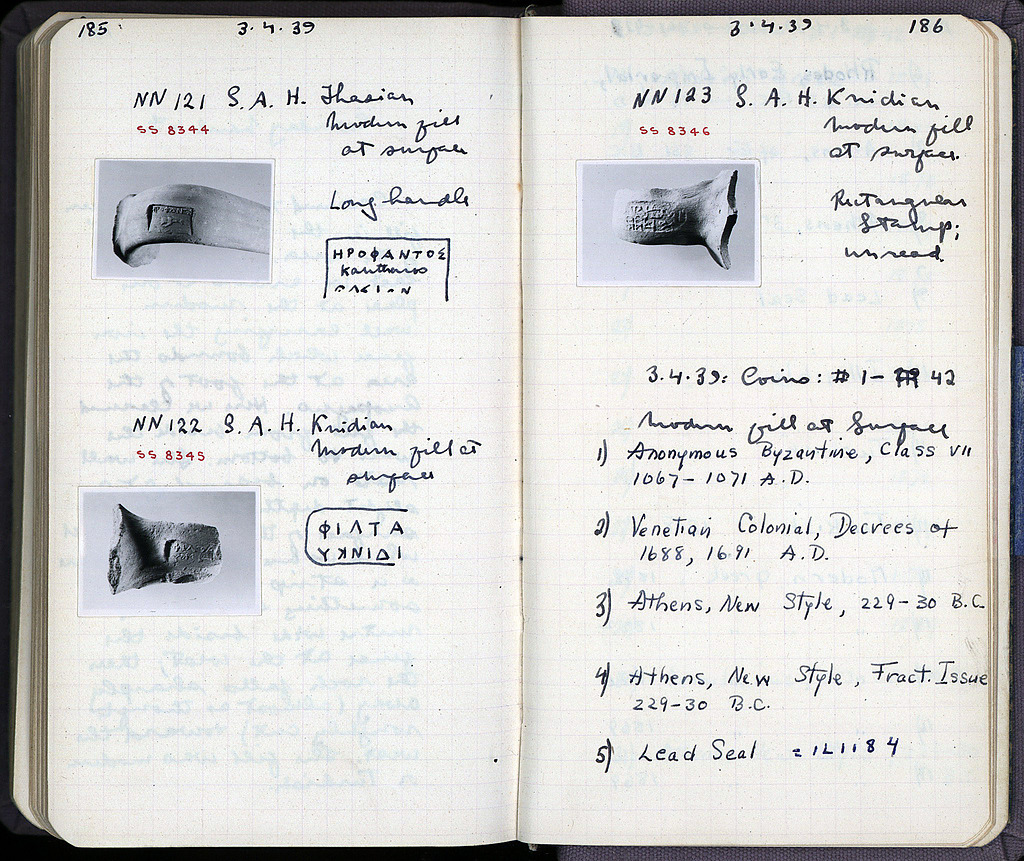 185
3.4.39
NN 121 S. A. H. Thasian
SS 8344
Modern fill
at surface
Long handle
ΗΡΟΦΑΝΤΟΣ
kantharos
NN 122 S. A. H. Knidian
SS 8345
Modern fill at
surface
ΦΙΛΤΑ
ΥΚΝΙΔΙ
3.4.39
186
NN 123 S. A. H. Knidian
SS 8346
Modern fill
at surface.
Rectangular
Stamp;
unread.
3.4.39: Coins: # 1- 42
Modern fill at Surface
1) Anonymous Byzantine, Class VII
1067-1071 A.D.
2) Venetian Colonial, Decrees of
1688, 1691 A.D.
3) Athens, New Style, 229-30 B.C.
4) Athens, New Style, Fract. Issue
229-30 B.C.
5) Lead Seal = IL 1184